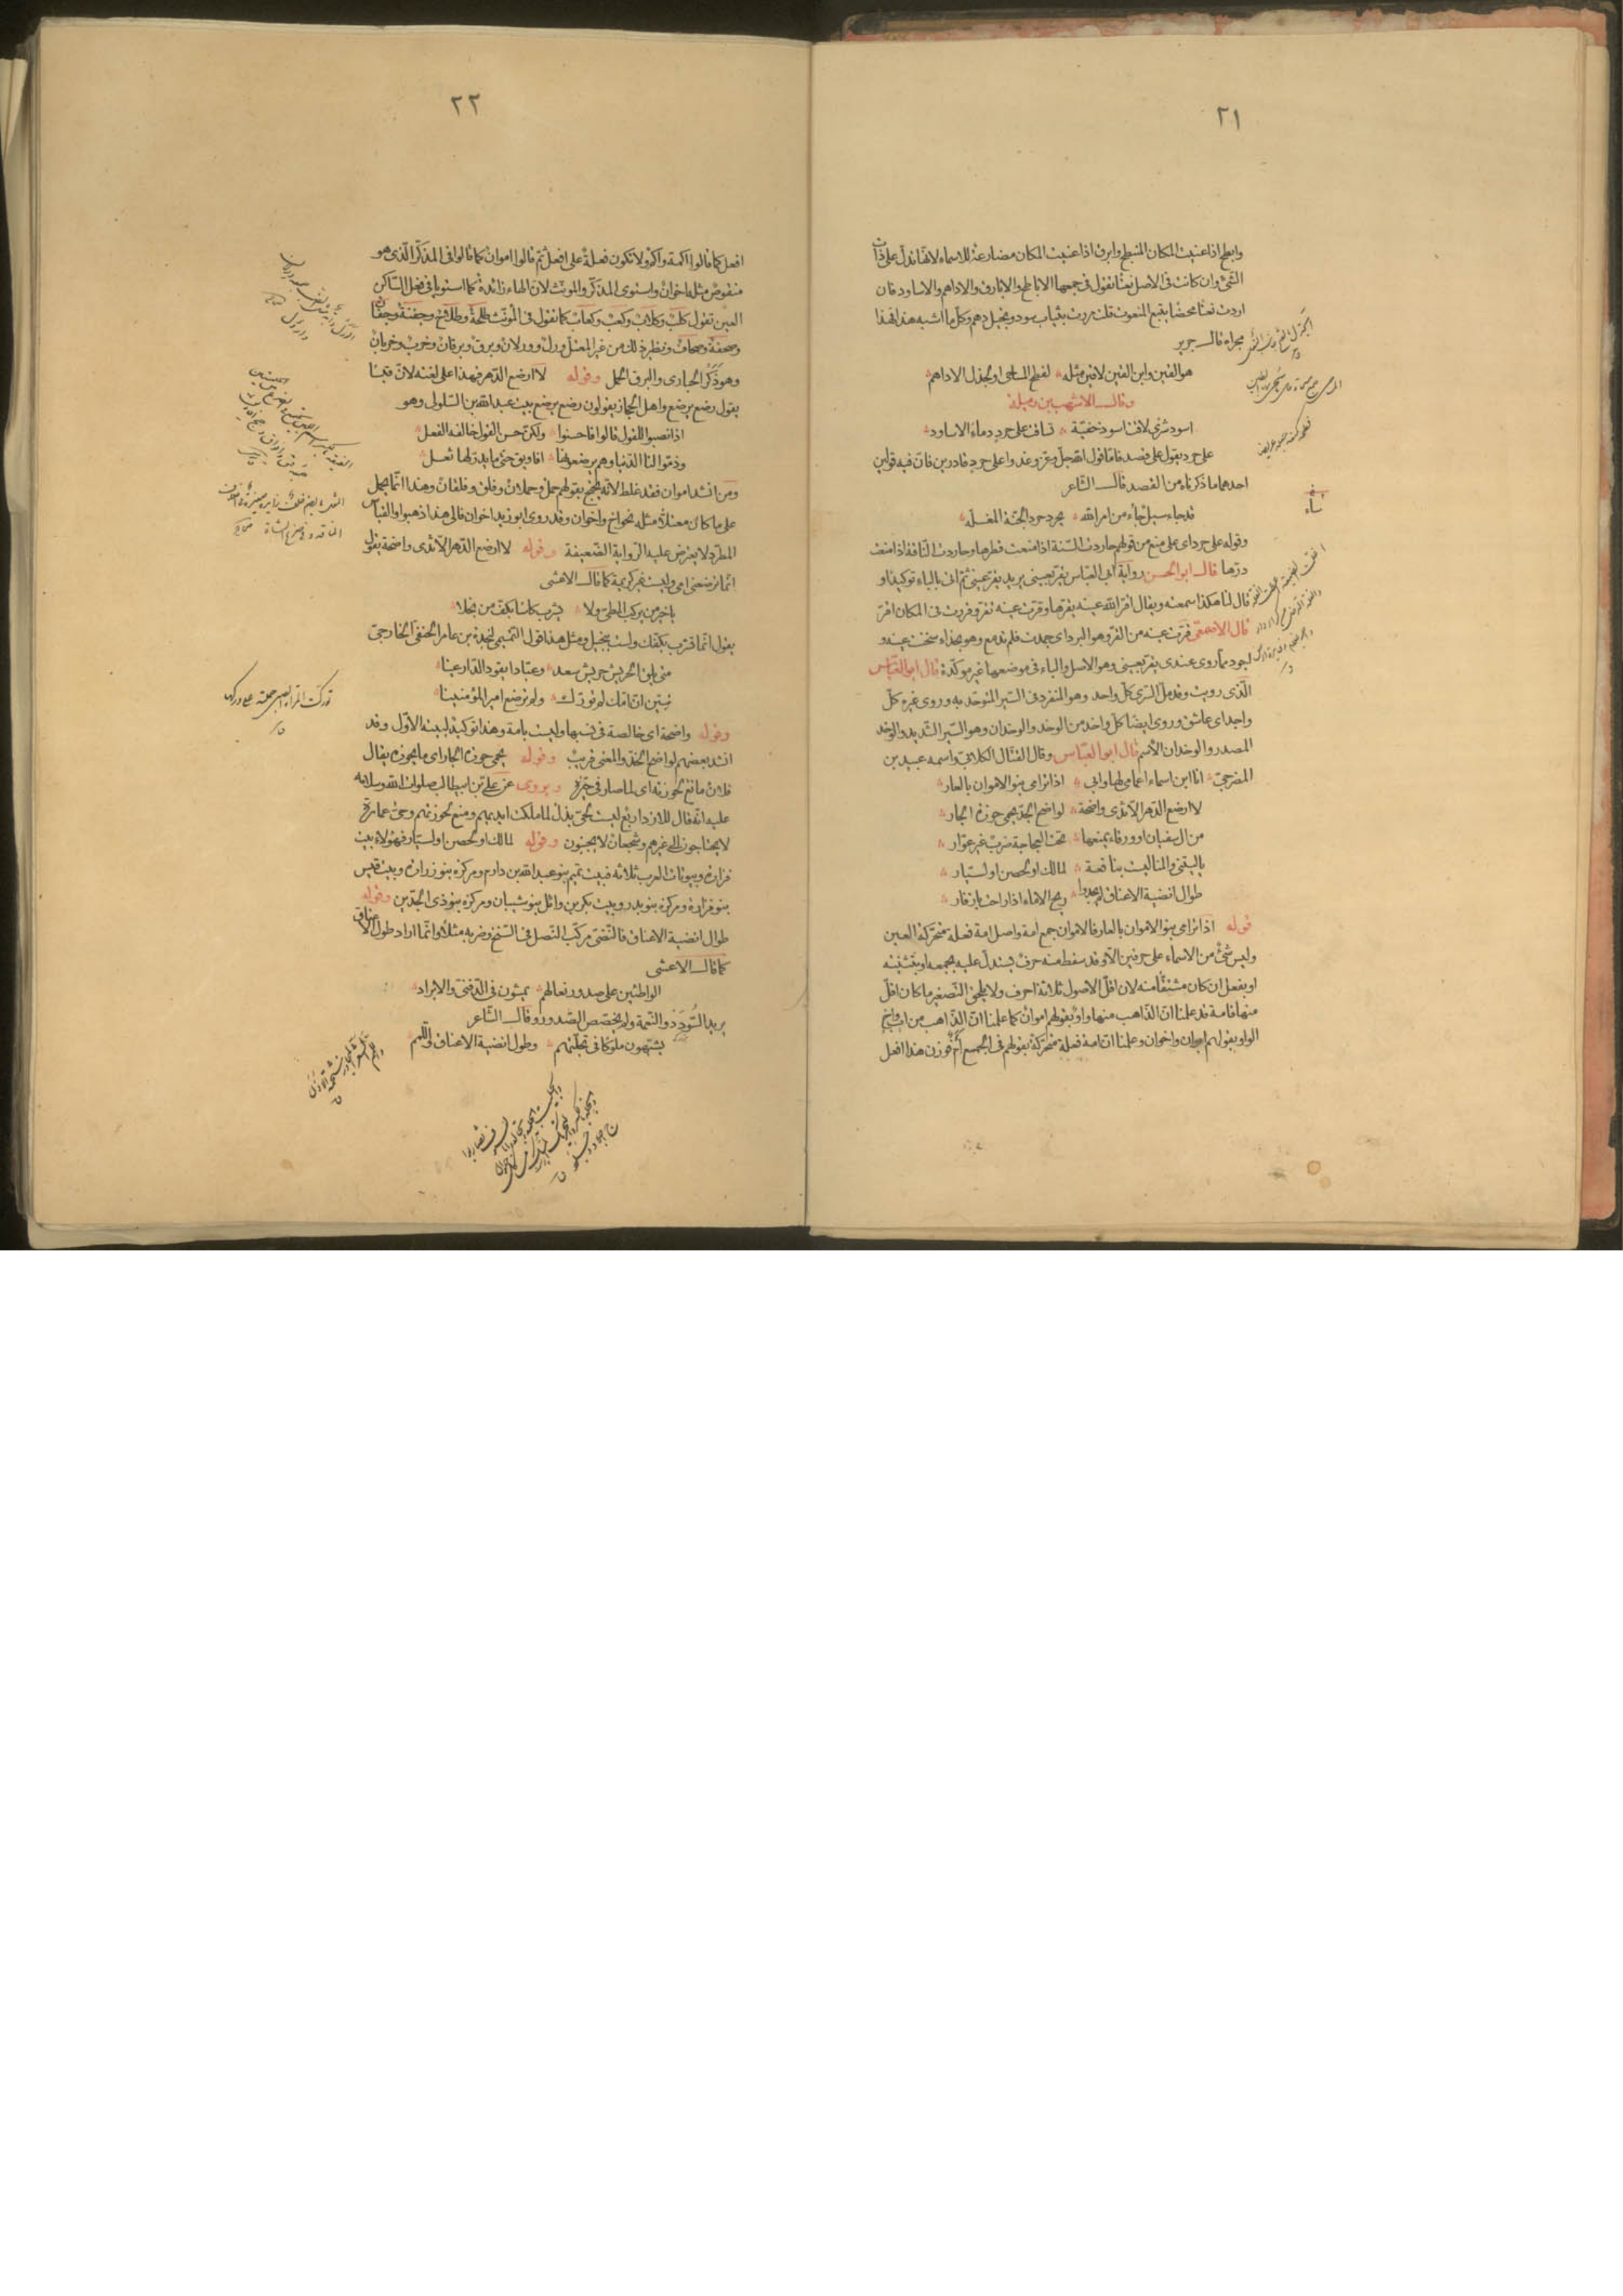 ٢١
وابطح اذا عنيت المكان المنبطح وابرق اذا عنيت المكان مضارعة للاسماء لانها تدل على ذات
الشئ وان كانت فى الاصل نعتا تقول فى جمعها الاباطح والابارق والاداهم والاساود فان
اردت نعتا محضا يتبع المنعوت قلت مررت بثياب سود وبخيل دهم وكل ما اشبه هذا فهذا
مجراه قال جرير
هو القين وابن القين لاقين مثله لفطح المساحى او لجدل الاداهم
وقال الاشهب بن رميلة
اسود شرى لاقت اسود خفية تساقت على حرد دماء الاساود
على حرد يقول على قصد فاما قول الله جل وعز وغدوا على حرد قادرين فان فيه قولين
احدهما ما ذكرناه من القصد قال الشاعر
قد جاء سيل جاء من امر الله يحرد حرد الجنة المغلة
وقوله على حرد اى على منع من قولهم حاردت السنة اذا منعت قطرها وحاردت الناقة اذا منعت
درها قال ابو الحسن رواية ابى العباس يقر بعينى يريد يقر عينى ثم اتى بالباء توكيدا و
قال لنا هكذا سمعته ويقال اقر الله عينه يقرها وقرت عينه تقر وقررت فى المكان اقر
قال الاصمعى قرت عينه من القر وهو البرد اى جمدت فلم تدمع وهو بحذاء سخنت عينه و
اجود مما روى عندى يقر بعينى وهو الاصل والباء فى موضعها غير موكدة قال ابو العباس
الذى رويت وقد مل السرى كل واحد وهو المنفرد فى السير المتوحد به وروى غيره كل
واجد اى عاشق وروى ايضا كل واخد من الوخد والوخدان وهو السير الشديد والوخد
المصدر والوخدان الاسم قال ابو العباس وقال القتال الكلابى واسمه عبيد بن
المضرجى انا ابن اسماء اعمامى لها وابى اذا ترامى بنو الاموان بالعار
لا ارضع الدهر الا ثدى واضحة لواضح الخد يحمى حوزة الجار
من ال سفيان او ورقاء يمنعها تحت العجاجة ضرب غير عوار
يا ليتنى والمنى ليست بنافعة لمالك او لحصن او لسيار
طوال انضية الاعناق لم يجدوا ريح الاماء اذا راحت بازفار
قوله اذا ترامى بنو الاموان بالعار فالاموان جمع امة واصل امة فعلة متحركة العين
وليس شئ من الاسماء على حرفين الا وقد سقط منه حرف يستدل عليه بجمعه او بتثنيته
او بفعل ان كان مشتقا منه لان اقل الاصول ثلاثة احرف ولا يلحق التصغير ما كان اقل
منها فامة قد علمنا ان الذاهب منها واو بقولهم اموان كما علمنا ان الذاهب من اب واخ
الواو بقولهم ابوان واخوان وعلمنا ان امة فعلة متحركة بقولهم فى الجميع آم فوزن هذا افعل
٢٢
افعل كما قالوا اكمة واكم ولا تكون فعلة على افعل ثم قالوا اموان كما قالوا فى المذكر الذى هو
منقوص مثله اخوان واستوى المذكر والمونث لان الهاء زائدة كما استويا فى فعل الساكن
العين تقول كلب وكلاب وكعب وكعاب كما تقول فى المونث طلحة وطلاح وجفنة وجفان
وصحفة وصحاف ونظير ذلك من غير المعتل ورل وورلان وبرق وبرقان وخرب وخربان
وهو ذكر الحبارى والبرق الحمل وقوله لا ارضع الدهر فهذا على لغته لان قيسا
يقول رضع يرضع واهل الحجاز يقولون رضع يرضع بيت عبد الله بن السلولى وهو
اذا نصبوا للقول قالوا فاحسنوا ولكن حسن القول خالفه الفعل
وذموا لنا الدنيا وهم يرضعونها افاويق حتى ما يدر لها ثعل
ومن انشد اموان فقد غلط لانه يحتج بقولهم حمل وحملان وفلق وفلقان وهذا انما يحمل
على ما كان معتلا مثله نحو اخ واخوان وقد روى ابو زيد اخوان فالى هذا ذهبوا والقياس
المطرد لا يعترض عليه الرواية الضعيفة وقوله لا ارضع الدهر الا ثدى واضحة يقول
انما ترضعنى امى وليست غير كريمة كما قال الاعشى
يا خير من يركب المطى ولا يشرب كاسا بكف من بخلا
يقول انما تشرب بكفك ولست ببخيل ومثل هذا قول التميمى لنجدة بن عامر الحنفى الخارجى
متى تلق الحريش حريش سعد وعبادا يقود الدارعينا
تبين ان امك لم تورك ولم ترضع امير المؤمنينا
وقوله واضحة اى خالصة فى نسبها وليست بامة وهذا توكيد لبيته الاول وقد
انشد بعضهم لواضح الخد والمعنى قريب وقوله يحمى حوزة الجار اى ما يحوزه يقال
فلان مانع لحوزته اى لما صار فى حيزه ويروى عن على بن ابيطالب صلوات الله وسلامه
عليه انه قال للازد اربع ليست لحى بذل لما ملكت ايديهم ومنع لحوزتهم وحى عمارة
لا يحتاجون الى غيرهم وشجعان لا يجبنون وقوله لمالك او لحصن او لسيار فهؤلاء بيت
فزارة وبيوتات العرب ثلاثة فبيت تميم بنو عبد الله بن دارم ومركزه بنو زرارة وبيت قيس
بنو فزارة ومركزه بنو بدر وبيت بكر بن وائل بنو شيبان ومركزه بنو ذى الجدين وقوله
طوال انضية الاعناق فالنضى مركب النصل فى السنخ وضربه مثلا وانما اراد طول الاعناق
كما قال الاعشى
الواطئين على صدور نعالهم يمشون فى الدفنى والابراد
يريد السودد والنعمة ولم يخصص الصدور وقال الشاعر
يشبهون ملوكا فى تجلتهم وطول انضية الاعناق واللمم